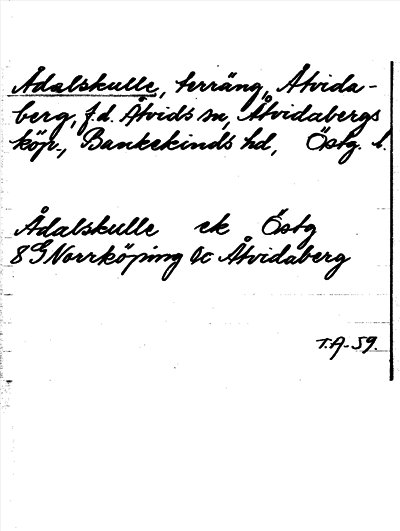 Ådalskulle, terräng, Åtvida-
berg, f.d. Åtvids sn, Åtvidabergs
köp., Bankekinds hd, Östg. l.
Ådalskulle ek Östg
8 G Norrköping 0c Åtvidaberg
T.A-59.